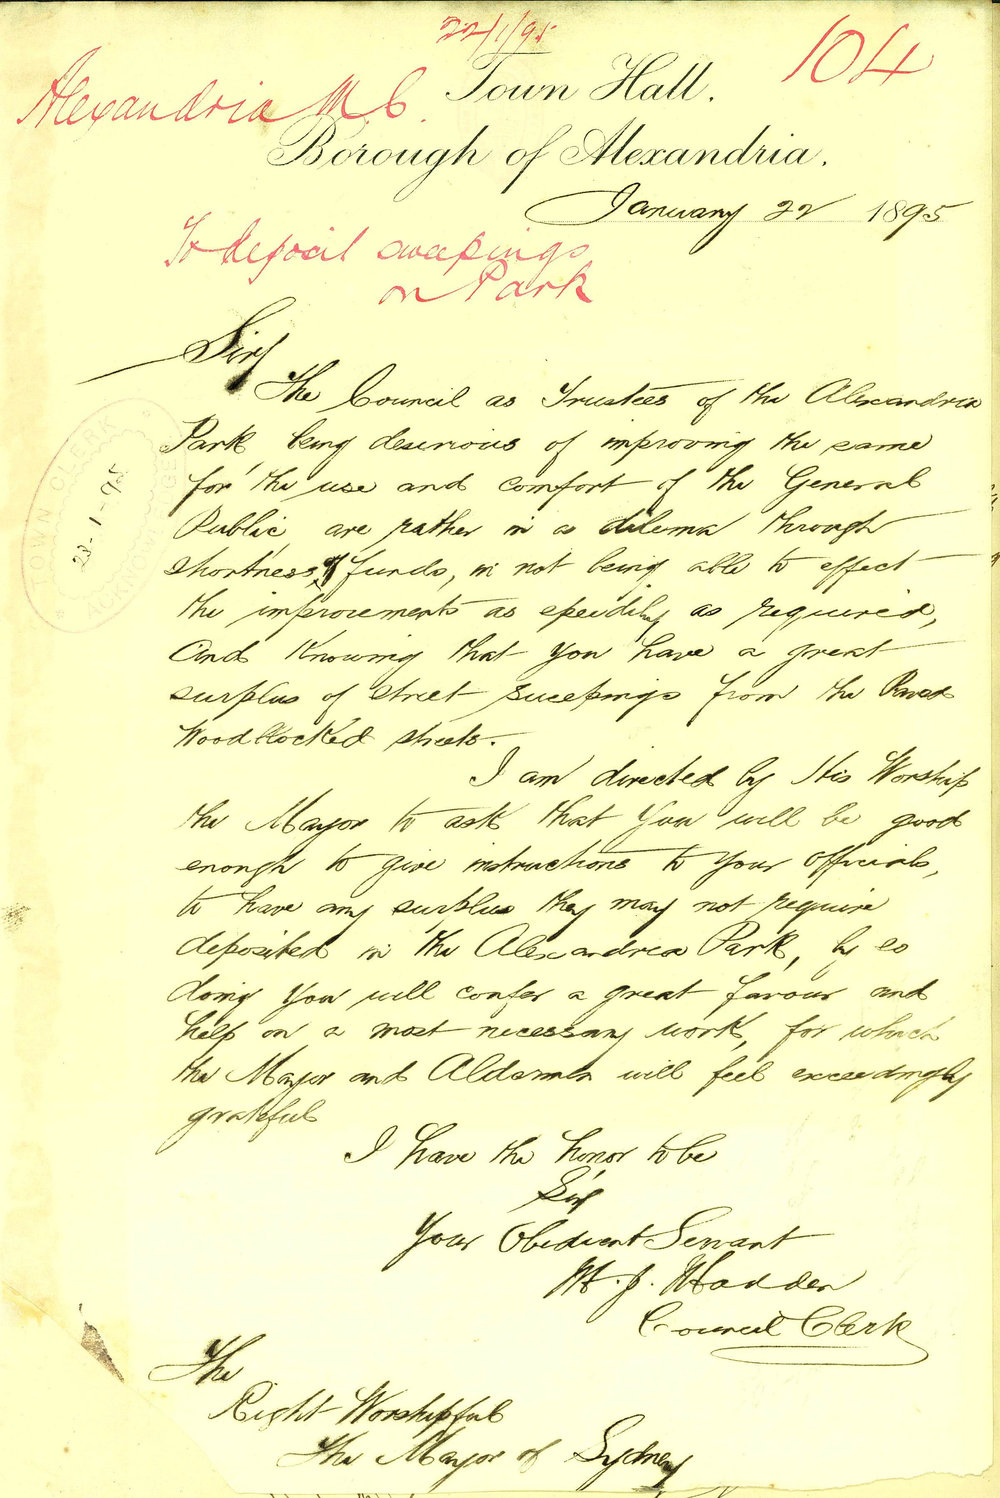 22/1/95
104
Alexandria M C.
Town Hall.
Borough of Alexandria.
January 22 1895
To deposit sweepings
on Park
Sir
The Council as Trustees of the Alexandria
Park, being deserious of improving the same
for the use and comfort of the General
Public, are rather in a dilema through
shortness of funds, in not being able to effect
the improvements as speedily as required,
and Knowing that you have a great
surplus of street sweepings from the Paved
Woodblocked streets.
I am directed by His Worship
the Mayor to ask that you will be good
enough to give instructions to your officials,
to have any surplus they may not require
deposited in the Alexandria Park, by so
doing you will confer a great favour and
help on a most necessary work, for which
the Mayor and Aldermen will feel exceedingly
grateful
I have the honor to be
Sir
Your Obedient Servant
M. J. Madden
Council Clerk
The
Right Worshipful
The Mayor of Sydney
TOWN CLERK
23-1-95